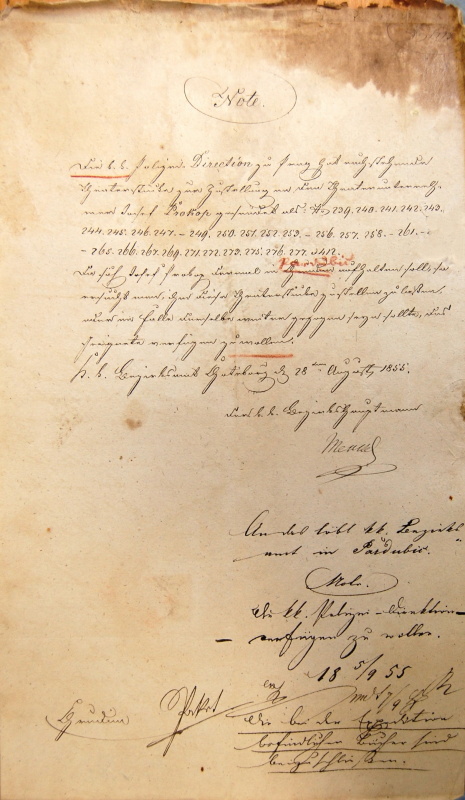 Note.
Die k. k. Polizei Direction zu Prag hat nachstehende
Theaterstücke zur Zustellung an den Theaterunterneh-
mer Josef Prokop gesendet als: No 239. 240. 241. 242. 243.
244. 245. 246. 247. – 249. 250. 251. 252. 253. – 256. 257. 258. – 261. –
– 265. 266. 267. 269. 271. 272. 273. 275. 276. 277.
Pardubic
Da sich Josef Prokop dermal in aufhalten soll, so
ersucht man, ihm diese Theaterstücke zustellen zu lassen,
und im Falle derselbe weiter gezogen seyn sollte, das
Geeignete verfügen zu wollen.
K. k. Bezirksamt den 28ten August 1855.
Der k. k. Bezirkshauptmann
An das löbl. k.k. Bezirks
amt in Pardubic.
Note.
Die k.k. Polizei-Direktion
verfügen zu wollen.
18 5/9 55
Die bei der
befindlichen Bücher sind
beizuschließen.